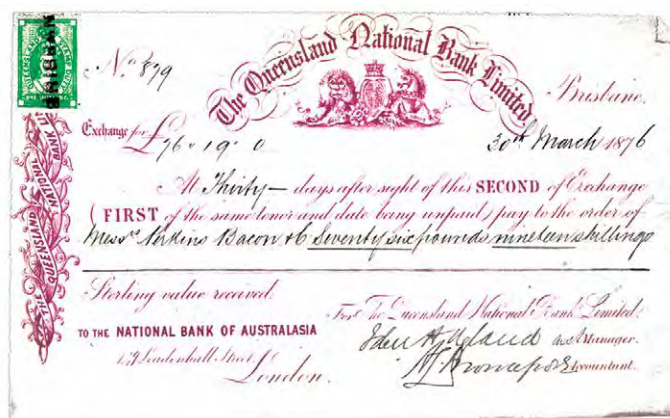 BRISBAN
No 879
The Queensland National Bank Limited.
Brisbane,
Exchange for £76 . 19 . 0
30th March 1876
At Thirty— days after sight of this SECOND of Exchange
(FIRST of the same tenor and date being unpaid) pay to the order of
Messrs Perkins Bacon & Co Seventy six pounds nineteen shillings
Sterling value received.
For The Queensland National Bank Limited.
TO THE NATIONAL BANK OF AUSTRALASIA
Manager.
Leadenhall Street,
Accountant.
London.
THE QUEENSLAND NATIONAL BANK